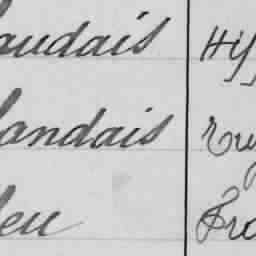 audais Hy
landais Eug
leu Fra